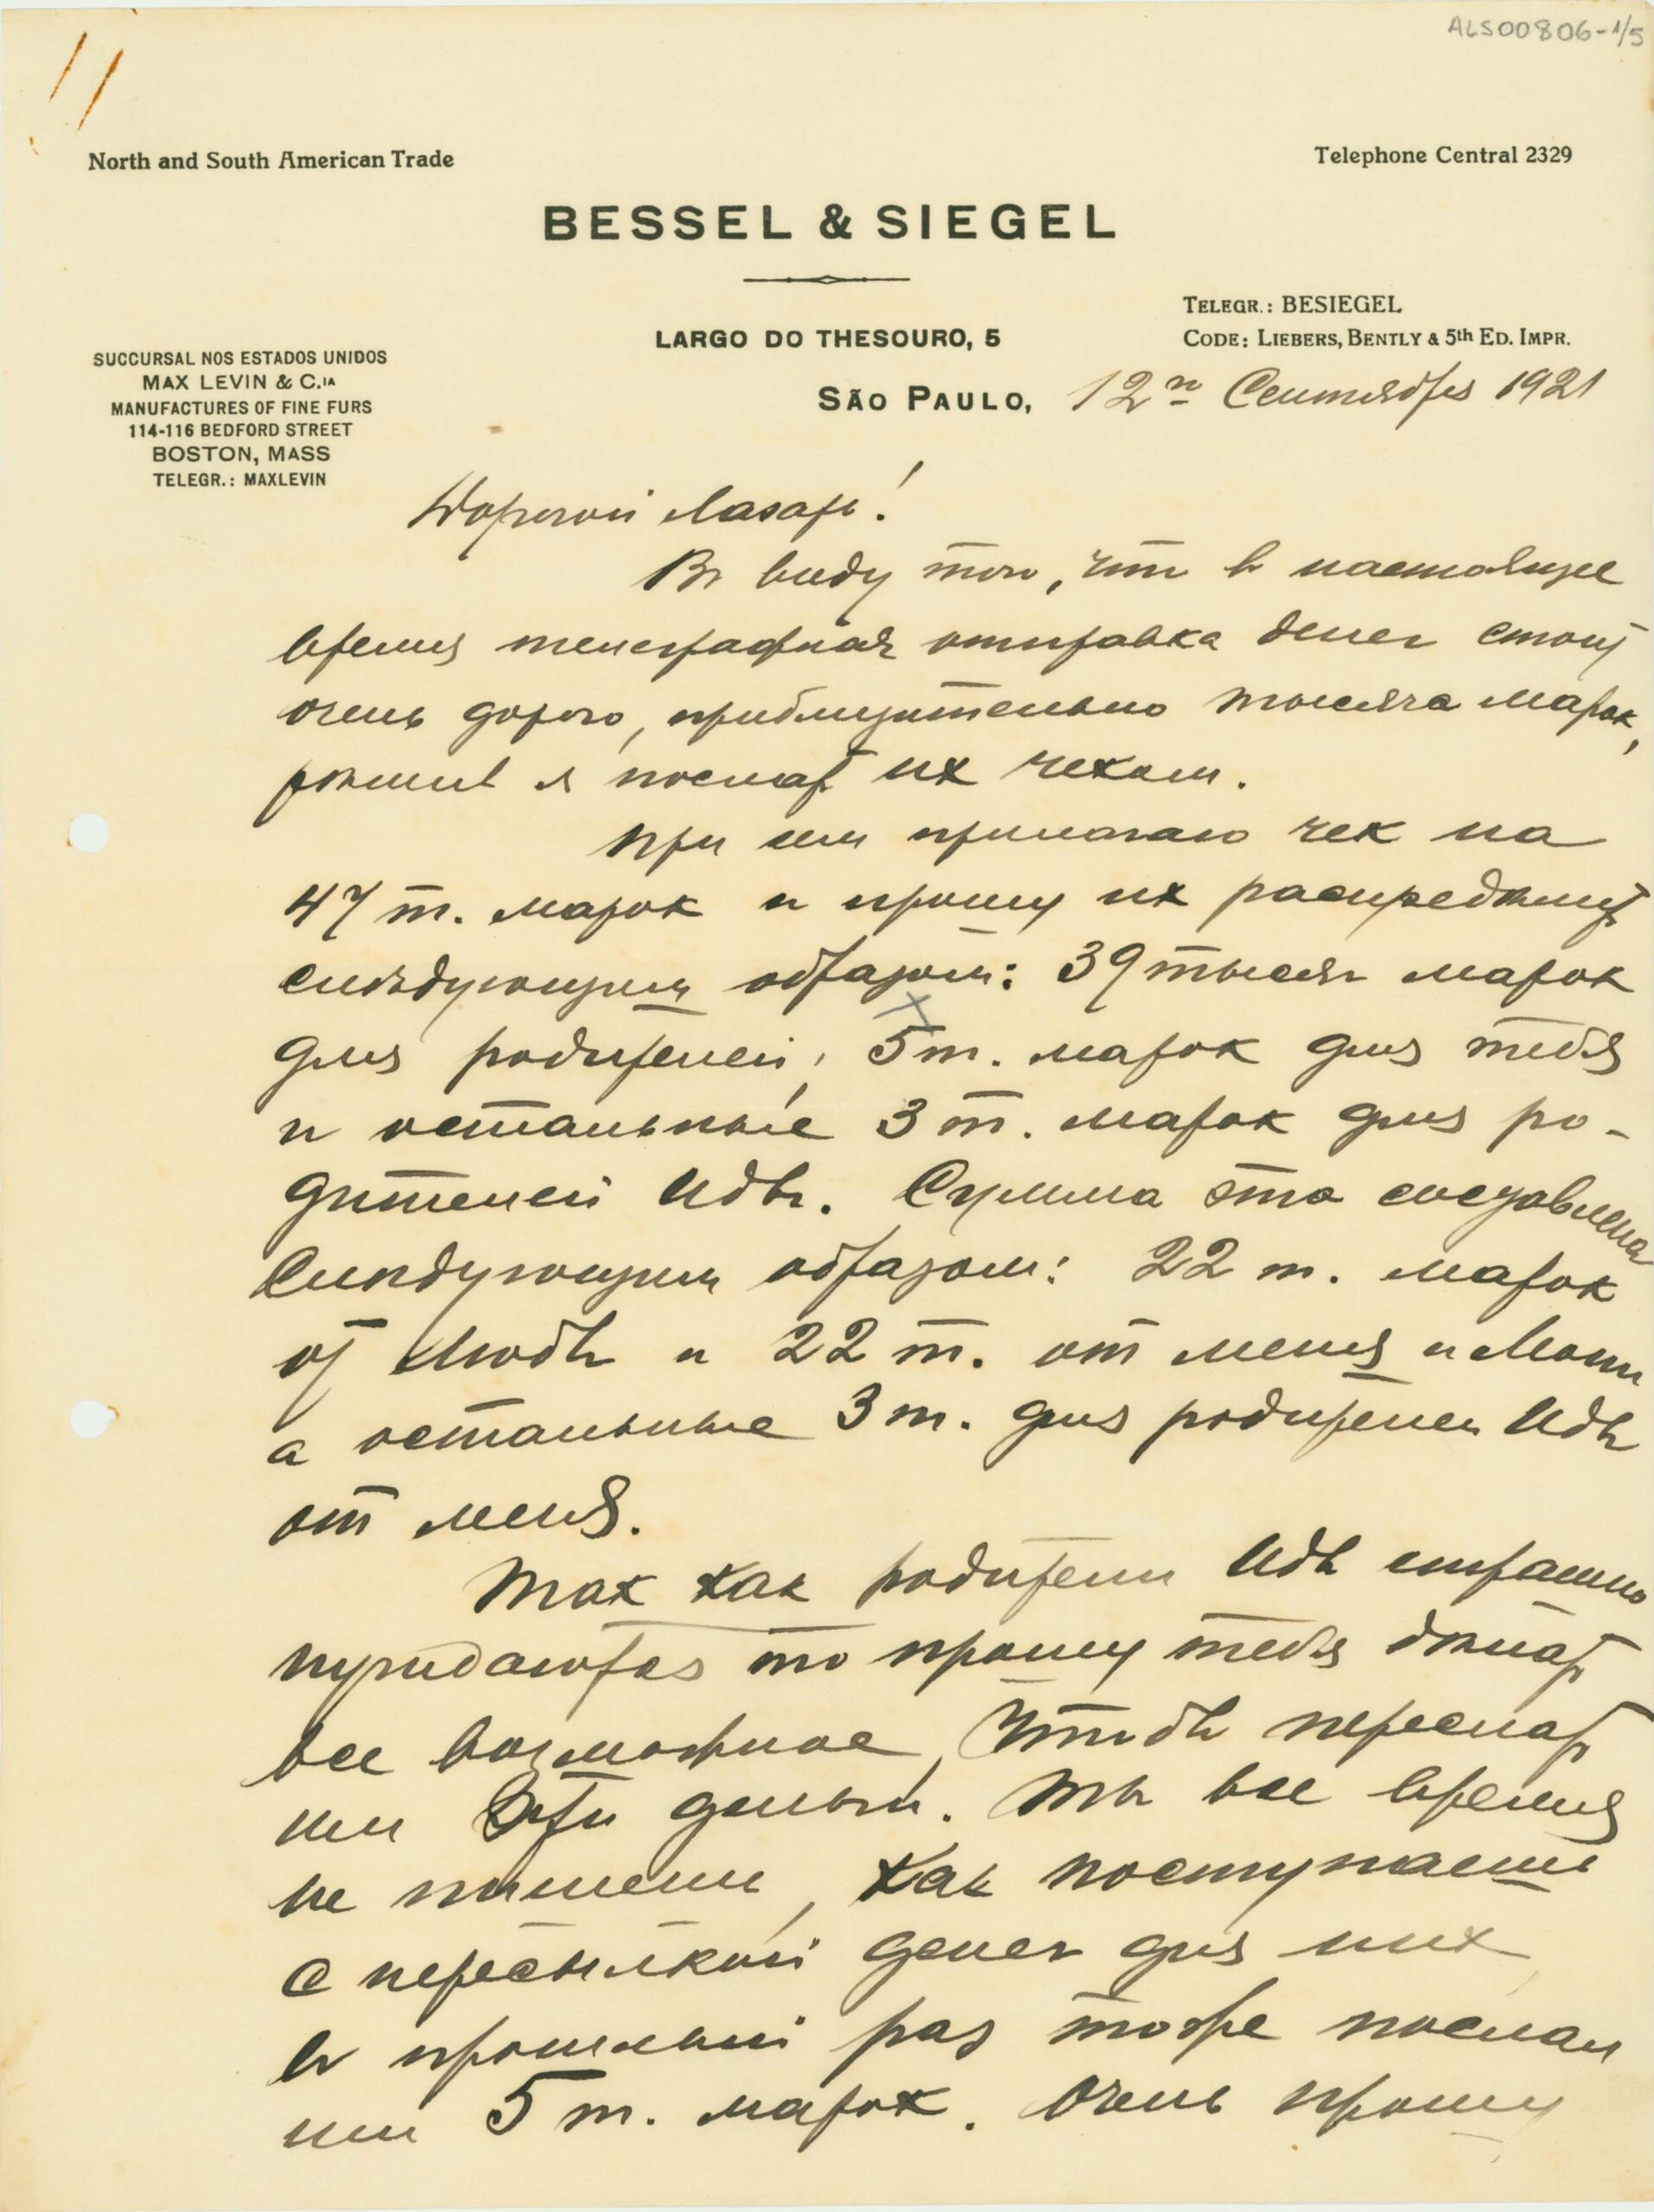 ALS00806-1/5
North and South American Trade
Telephone Central 2329
BESSEL & SIEGEL
TELEGR.: BESIEGEL
LARGO DO THESOURO, 5
CODE: LIEBERS, BENTLY & 5th ED. IMPR.
SUCCURSAL NOS ESTADOS UNIDOS
MAX LEVIN & C.IA
MANUFACTURES OF FINE FURS
114-116 BEDFORD STREET
BOSTON, MASS
TELEGR.: MAXLEVIN
SÃO PAULO, 12го Сентября 1921
Дорогой Лазарь!
В виду того, что в настоящее
время телеграфная отправка денег стоит
очень дорого, приблизительно тысяча марок,
решил я послать их чеком.
При сем прилагаю чек на
47 т. марок и прошу их распределить
следующим образом: 39 тысяч марок
для родителей, 5 т. марок для тебя
и остальные 3 т. марок для ро-
дителей Иды. Сумма эта составлена
следующим образом: 22 т. марок
от Любы и 22 т. от меня и
а остальные 3 т. для родителей Иды
от меня.
Так как родители Иды страшно
нуждаются то прошу тебя делать
все возможное, чтобы переслать
им эти деньги. Ты все время
не пишешь, как поступаешь
с пересылкой денег для них
в прошлый раз тоже послал
им 5 т. марок. Очень прошу